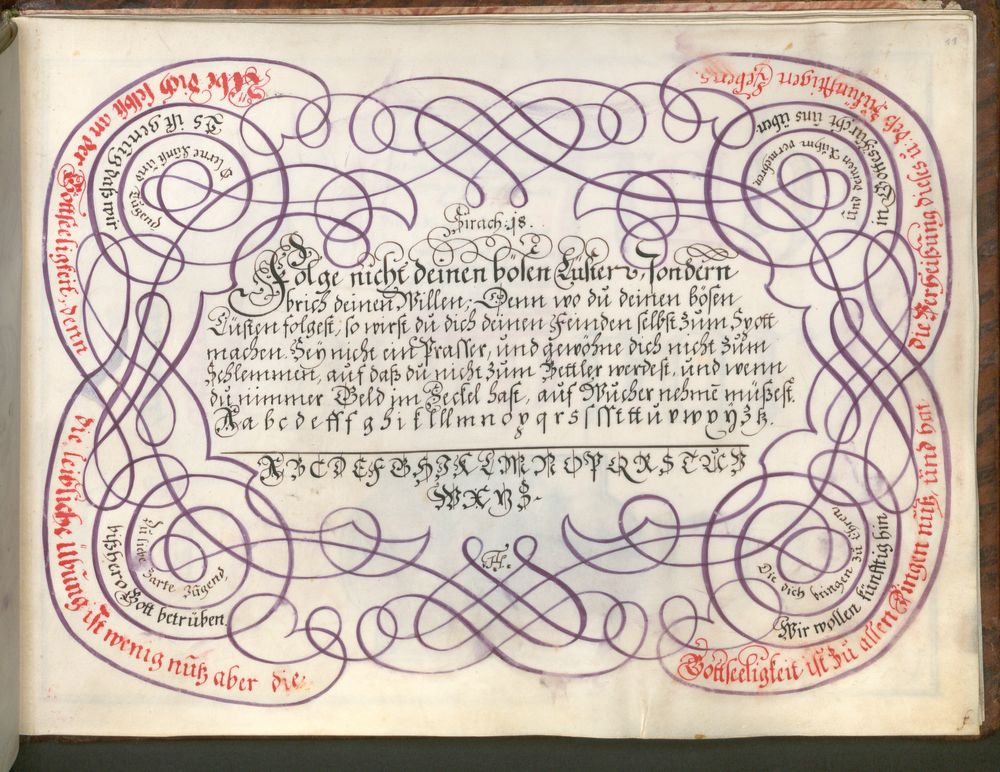 Sirach. 18.
Folge nicht deinen bösen Lüsten, sondern
brich deinen Willen; Denn wo du deinen bösen
Lüsten folgest, so wirst du dich deinen Feinden selbst zum Spott
machen. Sey nicht ein Prasser, und gewöhne dich nicht zum
Schlemmen, auf daß du nicht zum Bettler werdest, und wenn
du nimmer Geld im Seckel hast, auf Wucher nehmē müßest.
A a b c d e f f f g h i k l l l m n o p q r s s s s t t t u v w x y ÿ z tz.
A B C D E F G H I K L M N O P Q R S T U V
W X Y Z.
Übe dich selbst an der Gottseeligkeit, denn
die leibliche Übung ist wenig nütz aber die
Gottseeligkeit ist zu allen Dingen nütz, und hat
die Verheißung dieses ū. deß zukünfftigen Lebens.
Es ist genug daß wir
bißhero Gott betrüben.
Wir wollen künfftig hin
in Gottesfurcht uns üben
lerne Künst und Tugend
liebe zarte Jugend,
Die dich bringen zu Ehren
Und deinen Ruhm vermehren